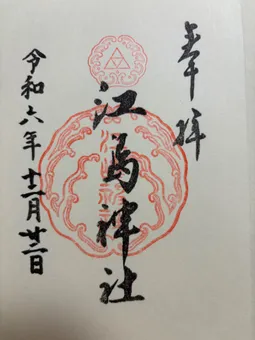 奉拝
江島神社
令和六年十一月廿二日